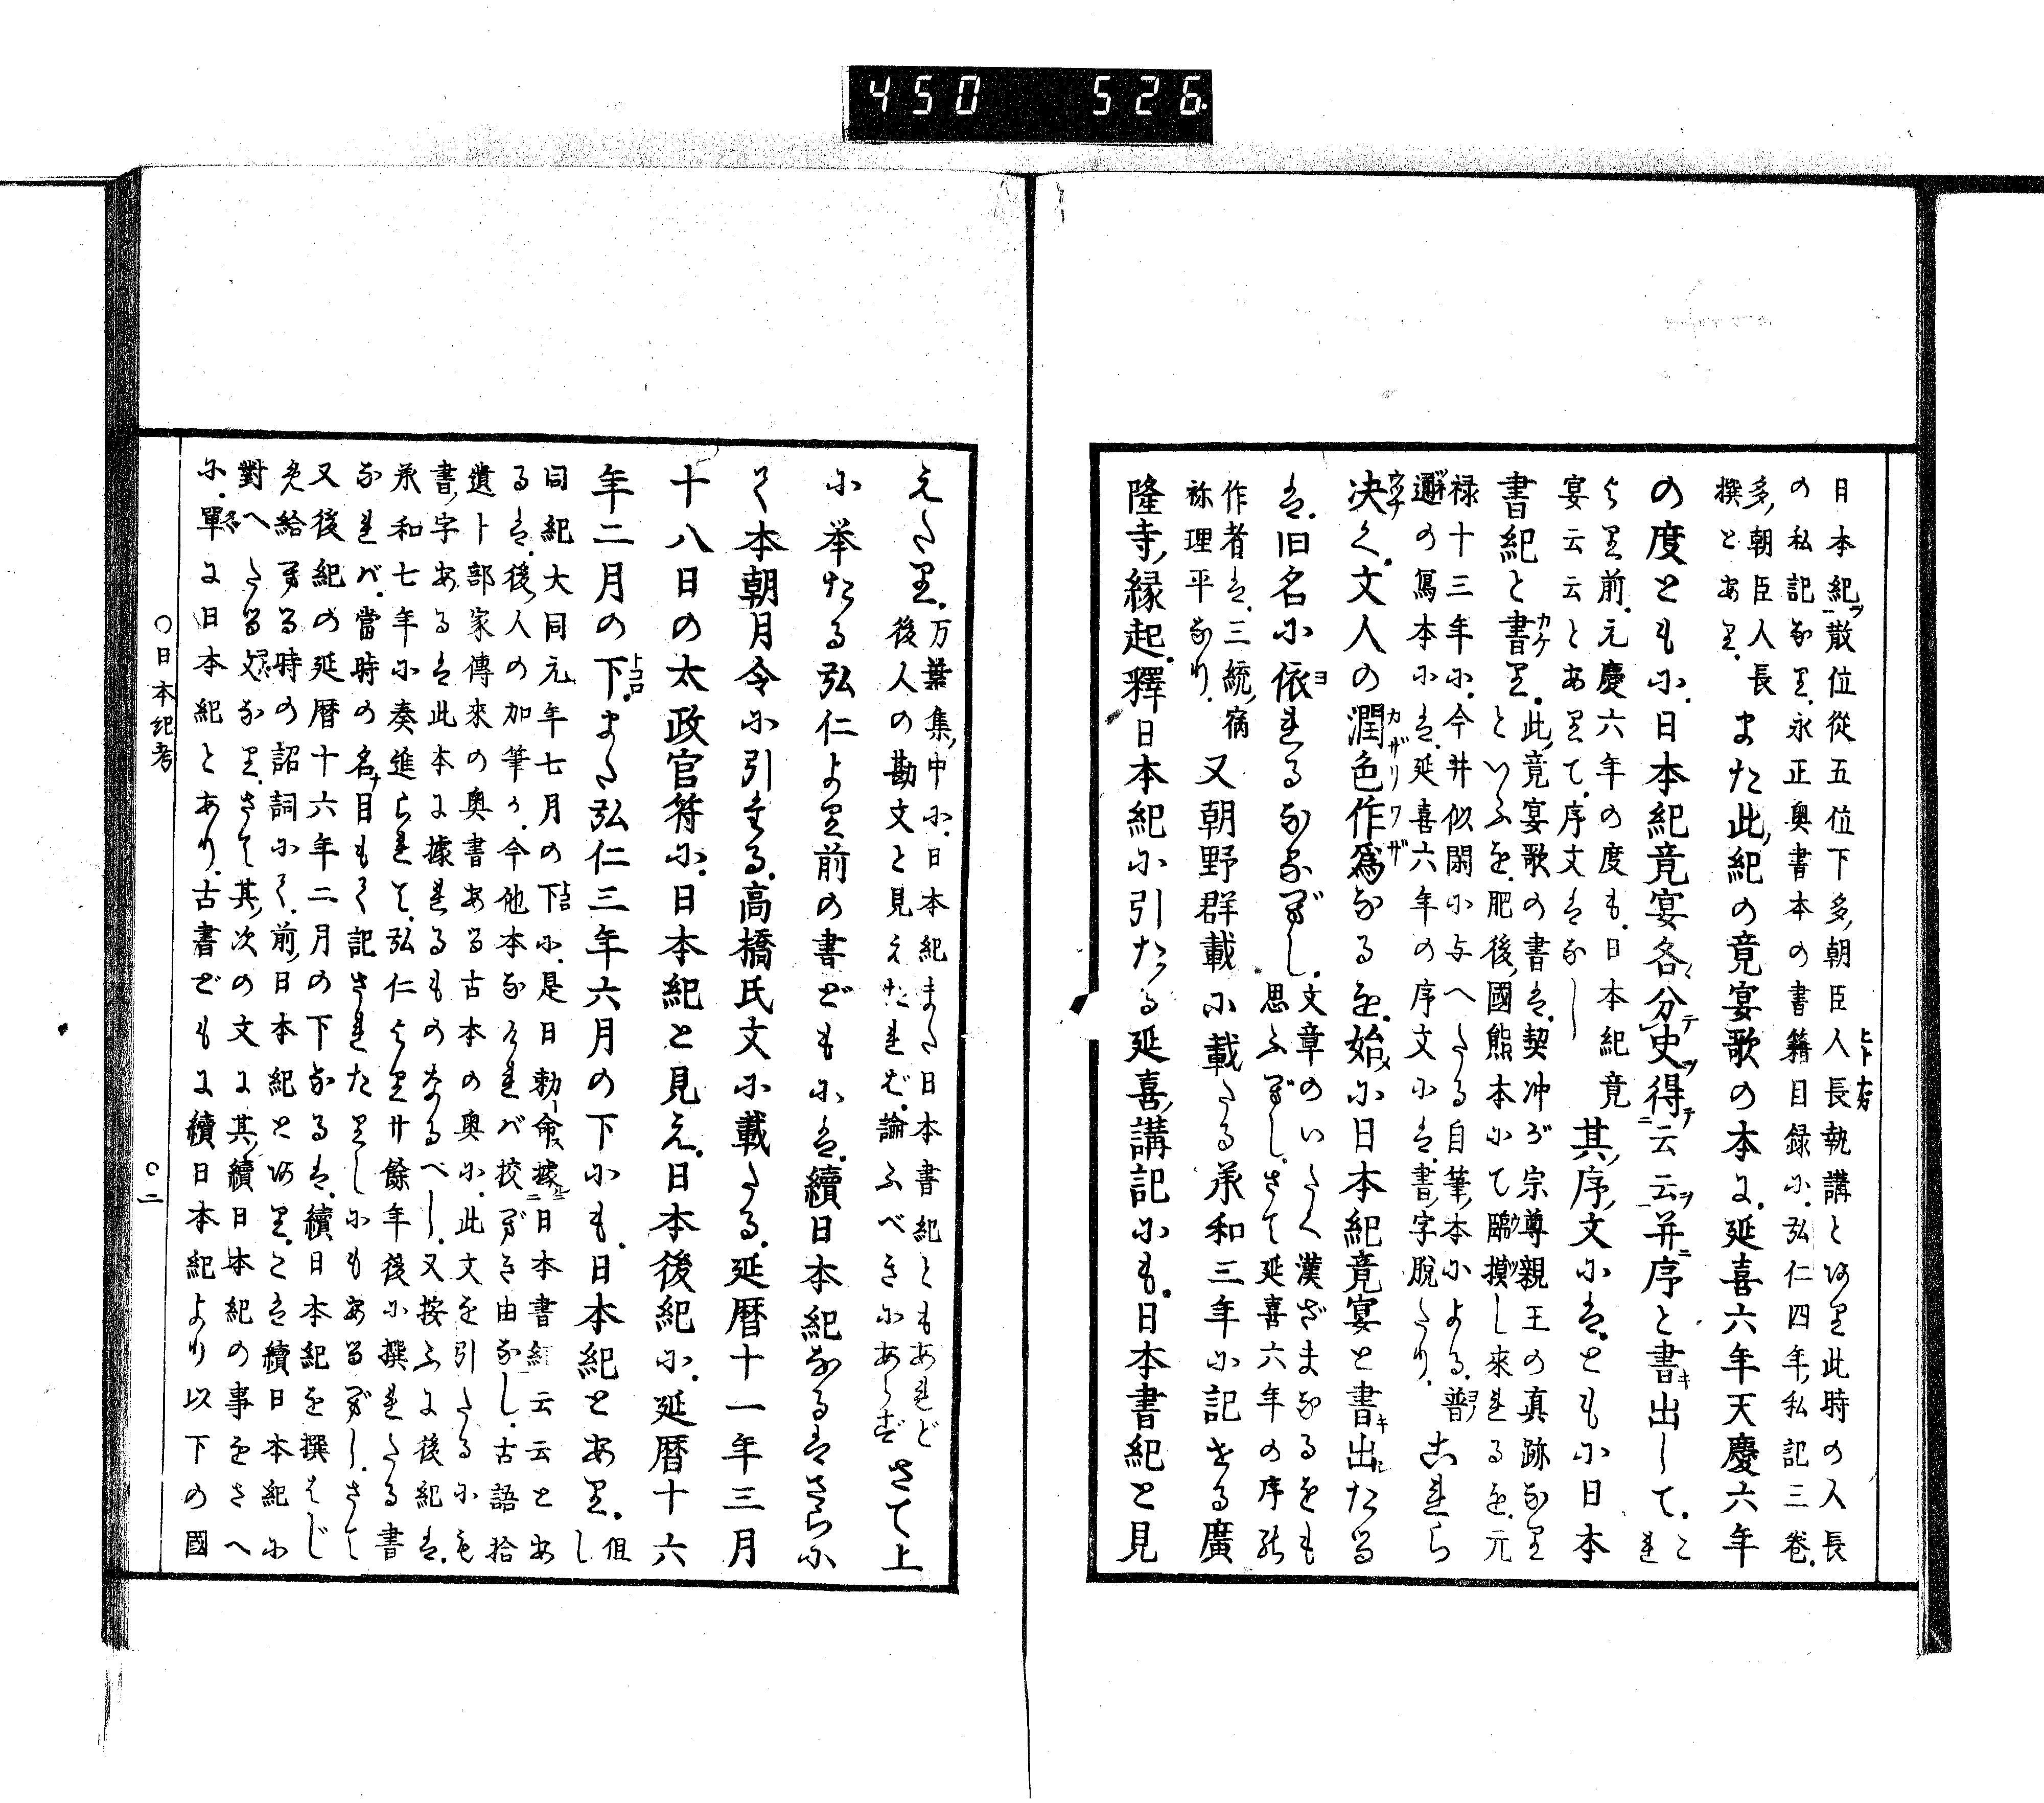 450 526
日本紀ヲ散位從五位下多朝臣人長執講とあり此時の人長
の私記なり。永正奥書本の書籍目録に。弘仁四年私記三卷。
多朝臣人長
撰とあり。
また此紀の竟宴歌の本に。延喜六年天慶六年
の度ともに。日本紀竟宴各分史得云云并序と書出して。
これ
より前。元慶六年の度も。日本紀竟
宴云云とあり て。序文はなし
其序文には。ともに日本
書紀と書り。
此竟宴歌の書は。契冲が宗尊親王の真跡なり
といふを。肥後國熊本にて臨摸し來れるを。元
禄十三年に。今井似閑に与へたる自筆本による。普
通の寫本には。延喜六年の序文には。書字脱たり。
これら
决く。文人の潤色作爲なるを。始に日本紀竟宴と書出たる
は。旧名に依れるなるべし。
文章のいたく漢ざまなるをも
思ふべし。さて延喜六年の序能
作者は。三統宿
祢理平なり。
又朝野群載に載たる承和三年に記せる廣
隆寺縁起。釋日本紀に引たる延喜講記にも。日本書紀と見
えたり。
万葉集中に。日本紀また日本書紀ともあれど
後人の勘文と見えたれば。論ふべきにあらず
さて上
に挙たる弘仁より前の書どもには。續日本紀なるはさらに
て本朝月令に引たる。高橋氏文に載たる。延暦十一年三月
十八日の太政官符に。日本紀と見え。日本後紀に。延暦十六
年二月の下。また弘仁三年六月の下にも。日本紀とあり。
但し
同紀大同元年七月の下に。是日勅命據日本書紀云云とあ
るは。後人の加筆か。今他本なければ校べき由なし。古語拾
遺卜部家傳來の奥書ある古本の奥に。此文を引たるにも
書字あるは此本に據れるものなるべし。又按ふに後紀は。
承和七年に奏進られて。弘仁より廿餘年後に撰れたる書
なれば。當時の名目もて記されたりしにもあるべし。さて
又後紀の延暦十六年二月の下なるは。續日本紀を撰はじ
め給へる時の詔詞にて。前日本紀とあり。こは續日本紀に
對へたる文なり。さて其次の文に其續日本紀の事をさへ
に。單に日本紀とあり。古書どもに續日本紀より以下の國
○日本紀考 ○二